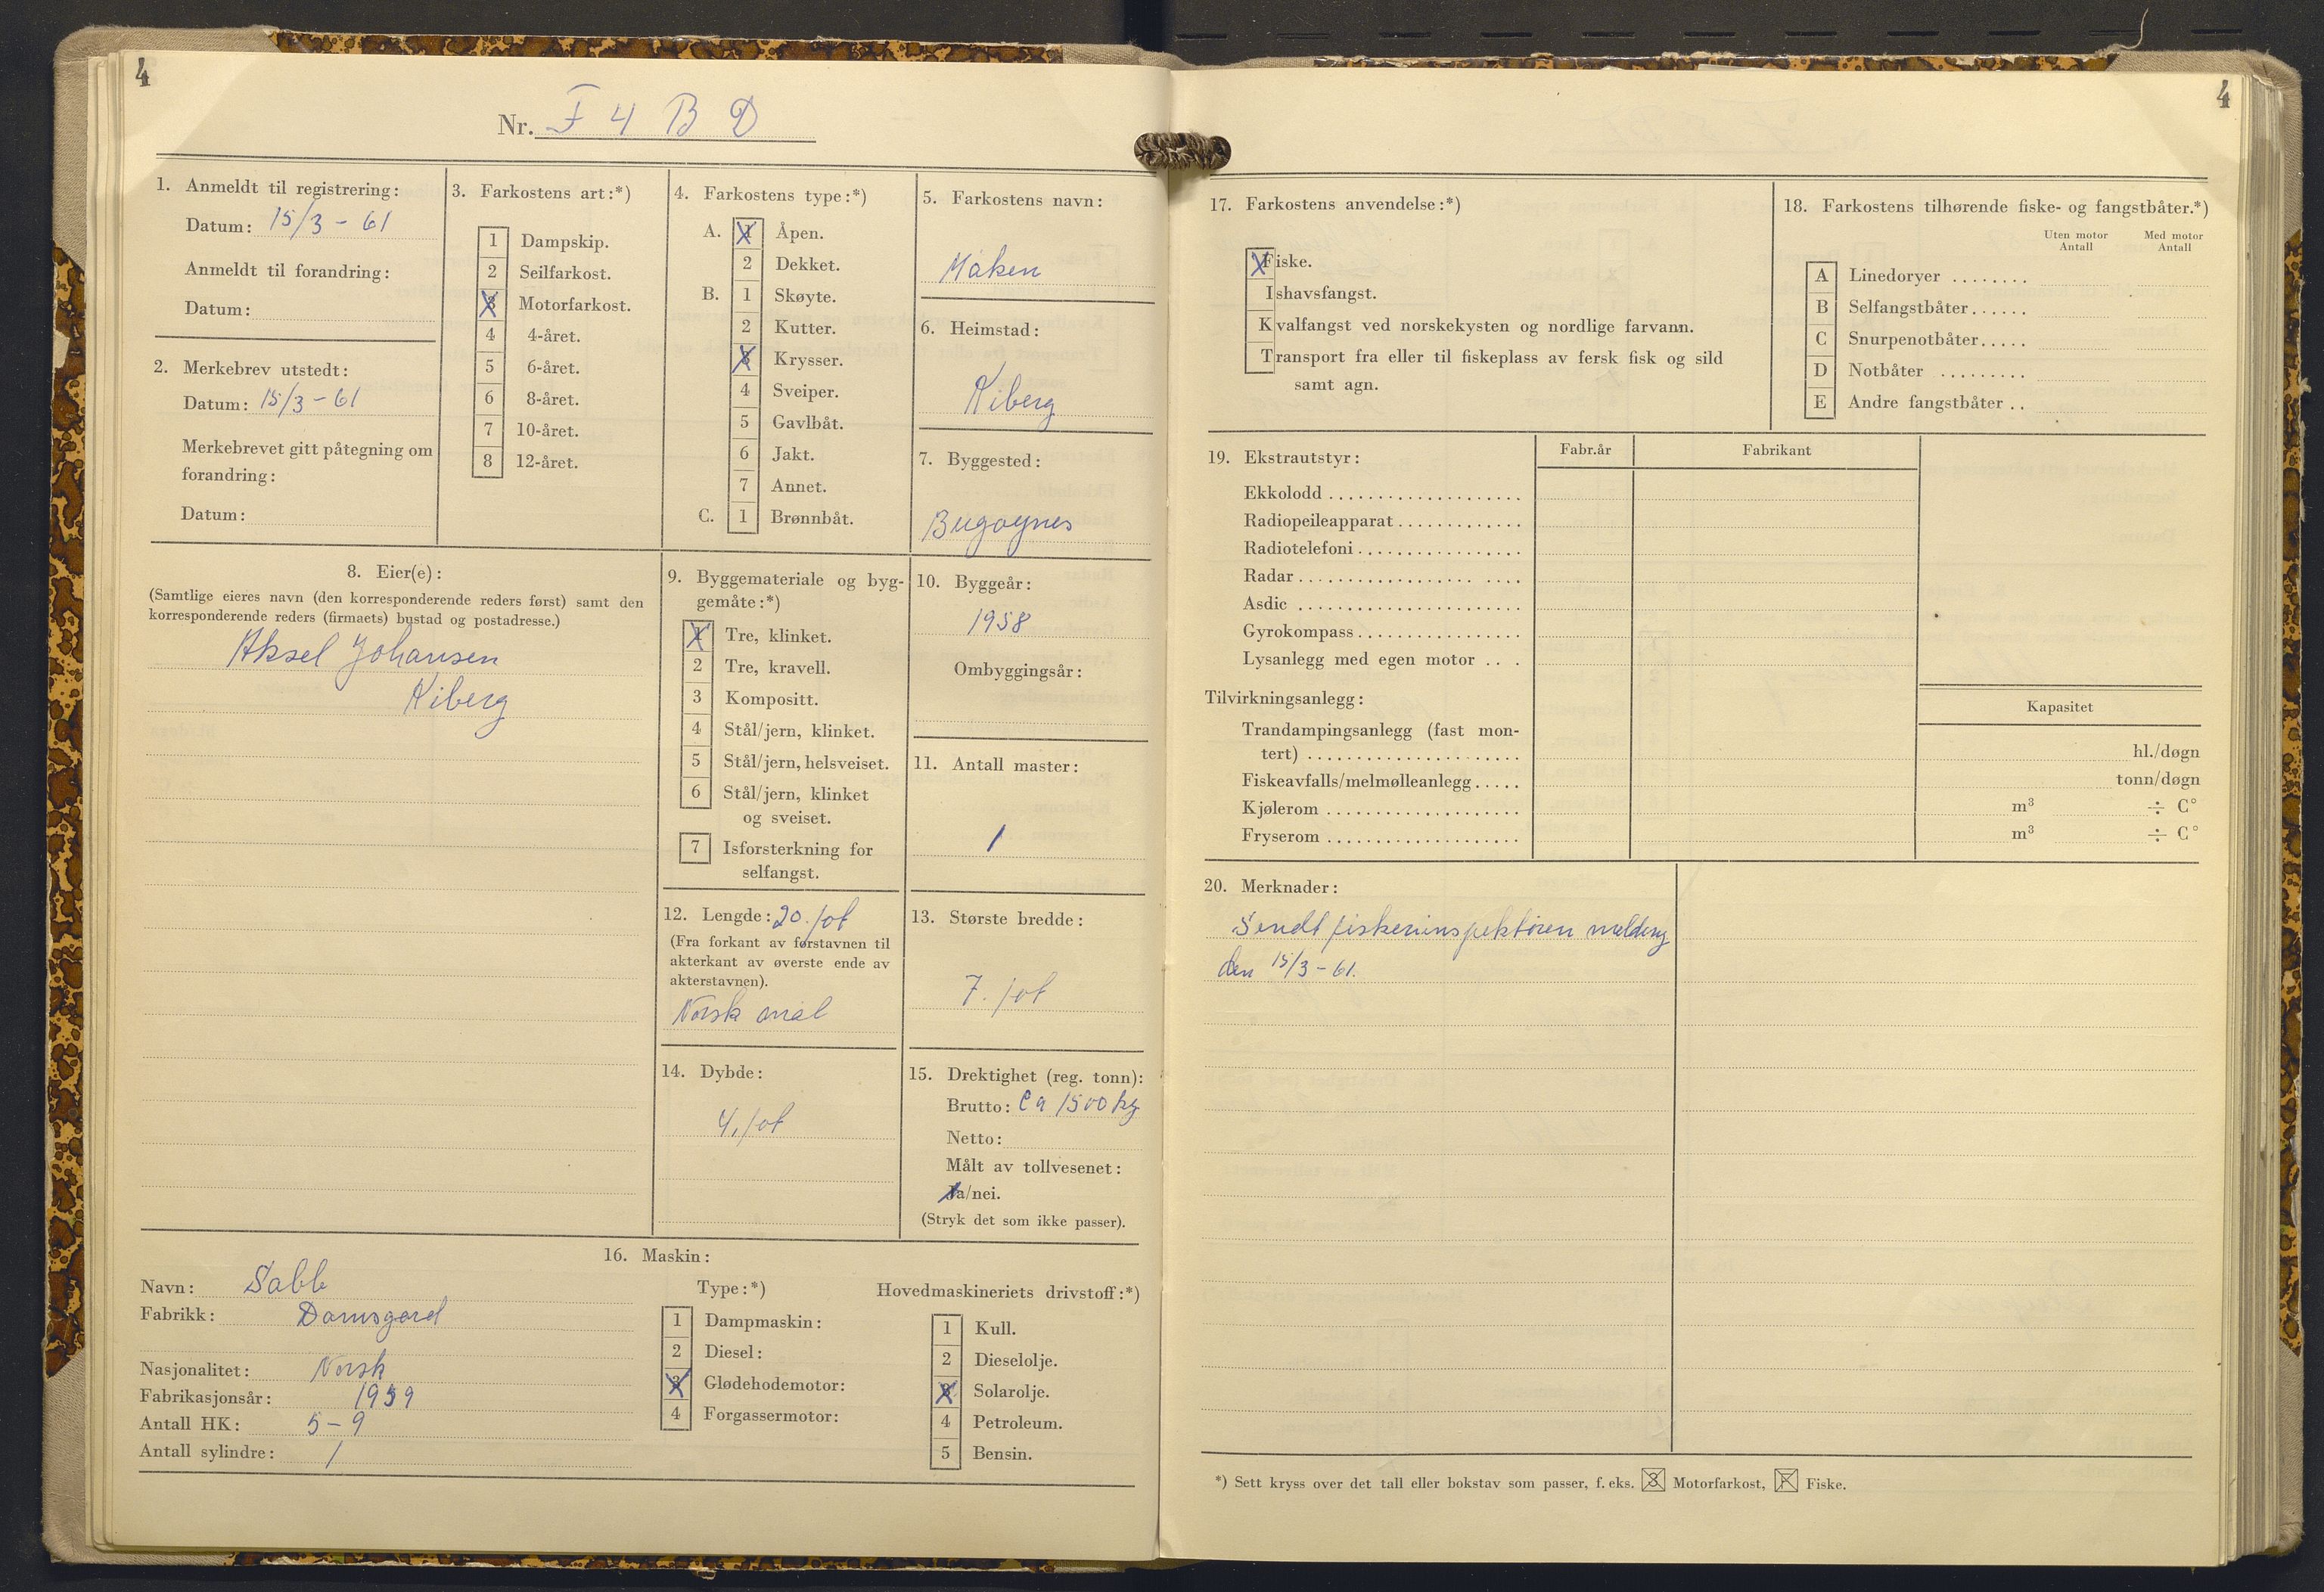 4
Nr. F 4 B D
1. Anmeldt til registrering:
Datum: 15/3 - 61
Anmeldt til forandring:
Datum:
2. Merkebrev utstedt:
Datum: 15/3 - 61
Merkebrevet gitt påtegning om
forandring:
Datum:
3. Farkostens art:*)
1 Dampskip.
2 Seilfarkost.
3 Motorfarkost.
4 4-året.
5 6-året.
6 8-året.
7 10-året.
8 12-året.
4. Farkostens type:*)
A. 1 Åpen.
2 Dekket.
B. 1 Skøyte.
2 Kutter.
3 Krysser.
4 Sveiper.
5 Gavlbåt.
6 Jakt.
7 Annet.
C. 1 Brønnbåt.
5. Farkostens navn:
Måken
6. Heimstad:
Kiberg
7. Byggested:
Bugøynes
8. Eier(e):
(Samtlige eieres navn (den korresponderende reders først) samt den
korresponderende reders (firmaets) bustad og postadresse.)
Aksel Johansen
Kiberg
9. Byggemateriale og byg-
gemåte:*)
1 Tre, klinket.
2 Tre, kravell.
3 Kompositt.
4 Stål/jern, klinket.
5 Stål/jern, helsveiset.
6 Stål/jern, klinket
og sveiset.
7 Isforsterkning for
selfangst.
10. Byggeår:
1958
Ombyggingsår:
11. Antall master:
1
12. Lengde: 20. fot
(Fra forkant av førstavnen til
akterkant av øverste ende av
akterstavnen).
Norsk mål
13. Største bredde:
7. fot
14. Dybde:
4. fot
15. Drektighet (reg. tonn):
Brutto: Ca 1500 kg
Netto:
Målt av tollvesenet:
Ja/nei.
(Stryk det som ikke passer).
16. Maskin:
Navn: Sabb
Fabrikk: Damsgård
Nasjonalitet: Norsk
Fabrikasjonsår: 1959
Antall HK: 5 - 9
Antall sylindre: 1
Type:*)
1 Dampmaskin:
2 Diesel:
3 Glødehodemotor:
4 Forgassermotor:
Hovedmaskineriets drivstoff:*)
1 Kull.
2 Dieselolje.
3 Solarolje.
4 Petroleum.
5 Bensin.
4
17. Farkostens anvendelse:*)
Fiske.
Ishavsfangst.
Kvalfangst ved norskekysten og nordlige farvann.
Transport fra eller til fiskeplass av fersk fisk og sild
samt agn.
18. Farkostens tilhørende fiske- og fangstbåter.*)
Uten motor Med motor
Antall Antall
A Linedoryer ........
B Selfangstbåter......
C Snurpenotbåter.....
D Notbåter .........
E Andre fangstbåter ..
19. Ekstrautstyr: Fabr.år Fabrikant
Ekkolodd ...................
Radiopeileapparat.............
Radiotelefoni.................
Radar.................. ....
Asdic .......................
Gyrokompass.................
Lysanlegg med egen motor .. .
Tilvirkningsanlegg: Kapasitet
Trandampingsanlegg (fast mon-
tert) ...................... hl./døgn
Fiskeavfalls/melmølleanlegg..... tonn/døgn
Kjølerom .................... m³ ÷ C°
Fryserom .................... m³ ÷ C°
20. Merknader:
Sendt fiskeriinspektøren melding
den 15/3 - 61.
*) Sett kryss over det tall eller bokstav som passer, f. eks. 3 Motorfarkost, F Fiske.